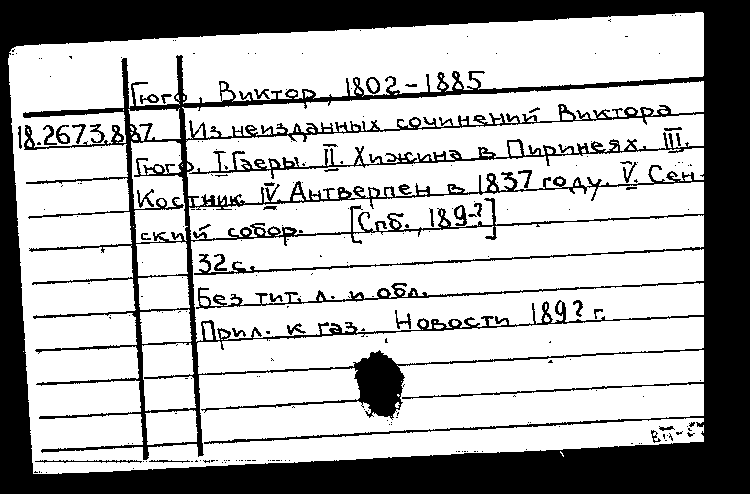 Гюго, Виктор, 1802-1885
18.267.3.887. Из неизданных сочинений Виктора
Гюго. I. Гаеры. II. Хижина в Пиринеях. III.
Костник. IV. Антверпен в 1837 году. V. Сен-
ский собор. [Спб., 189-?]
32 с.
Без тит. л. и обл.
Прил. к газ. Новости 189? г.